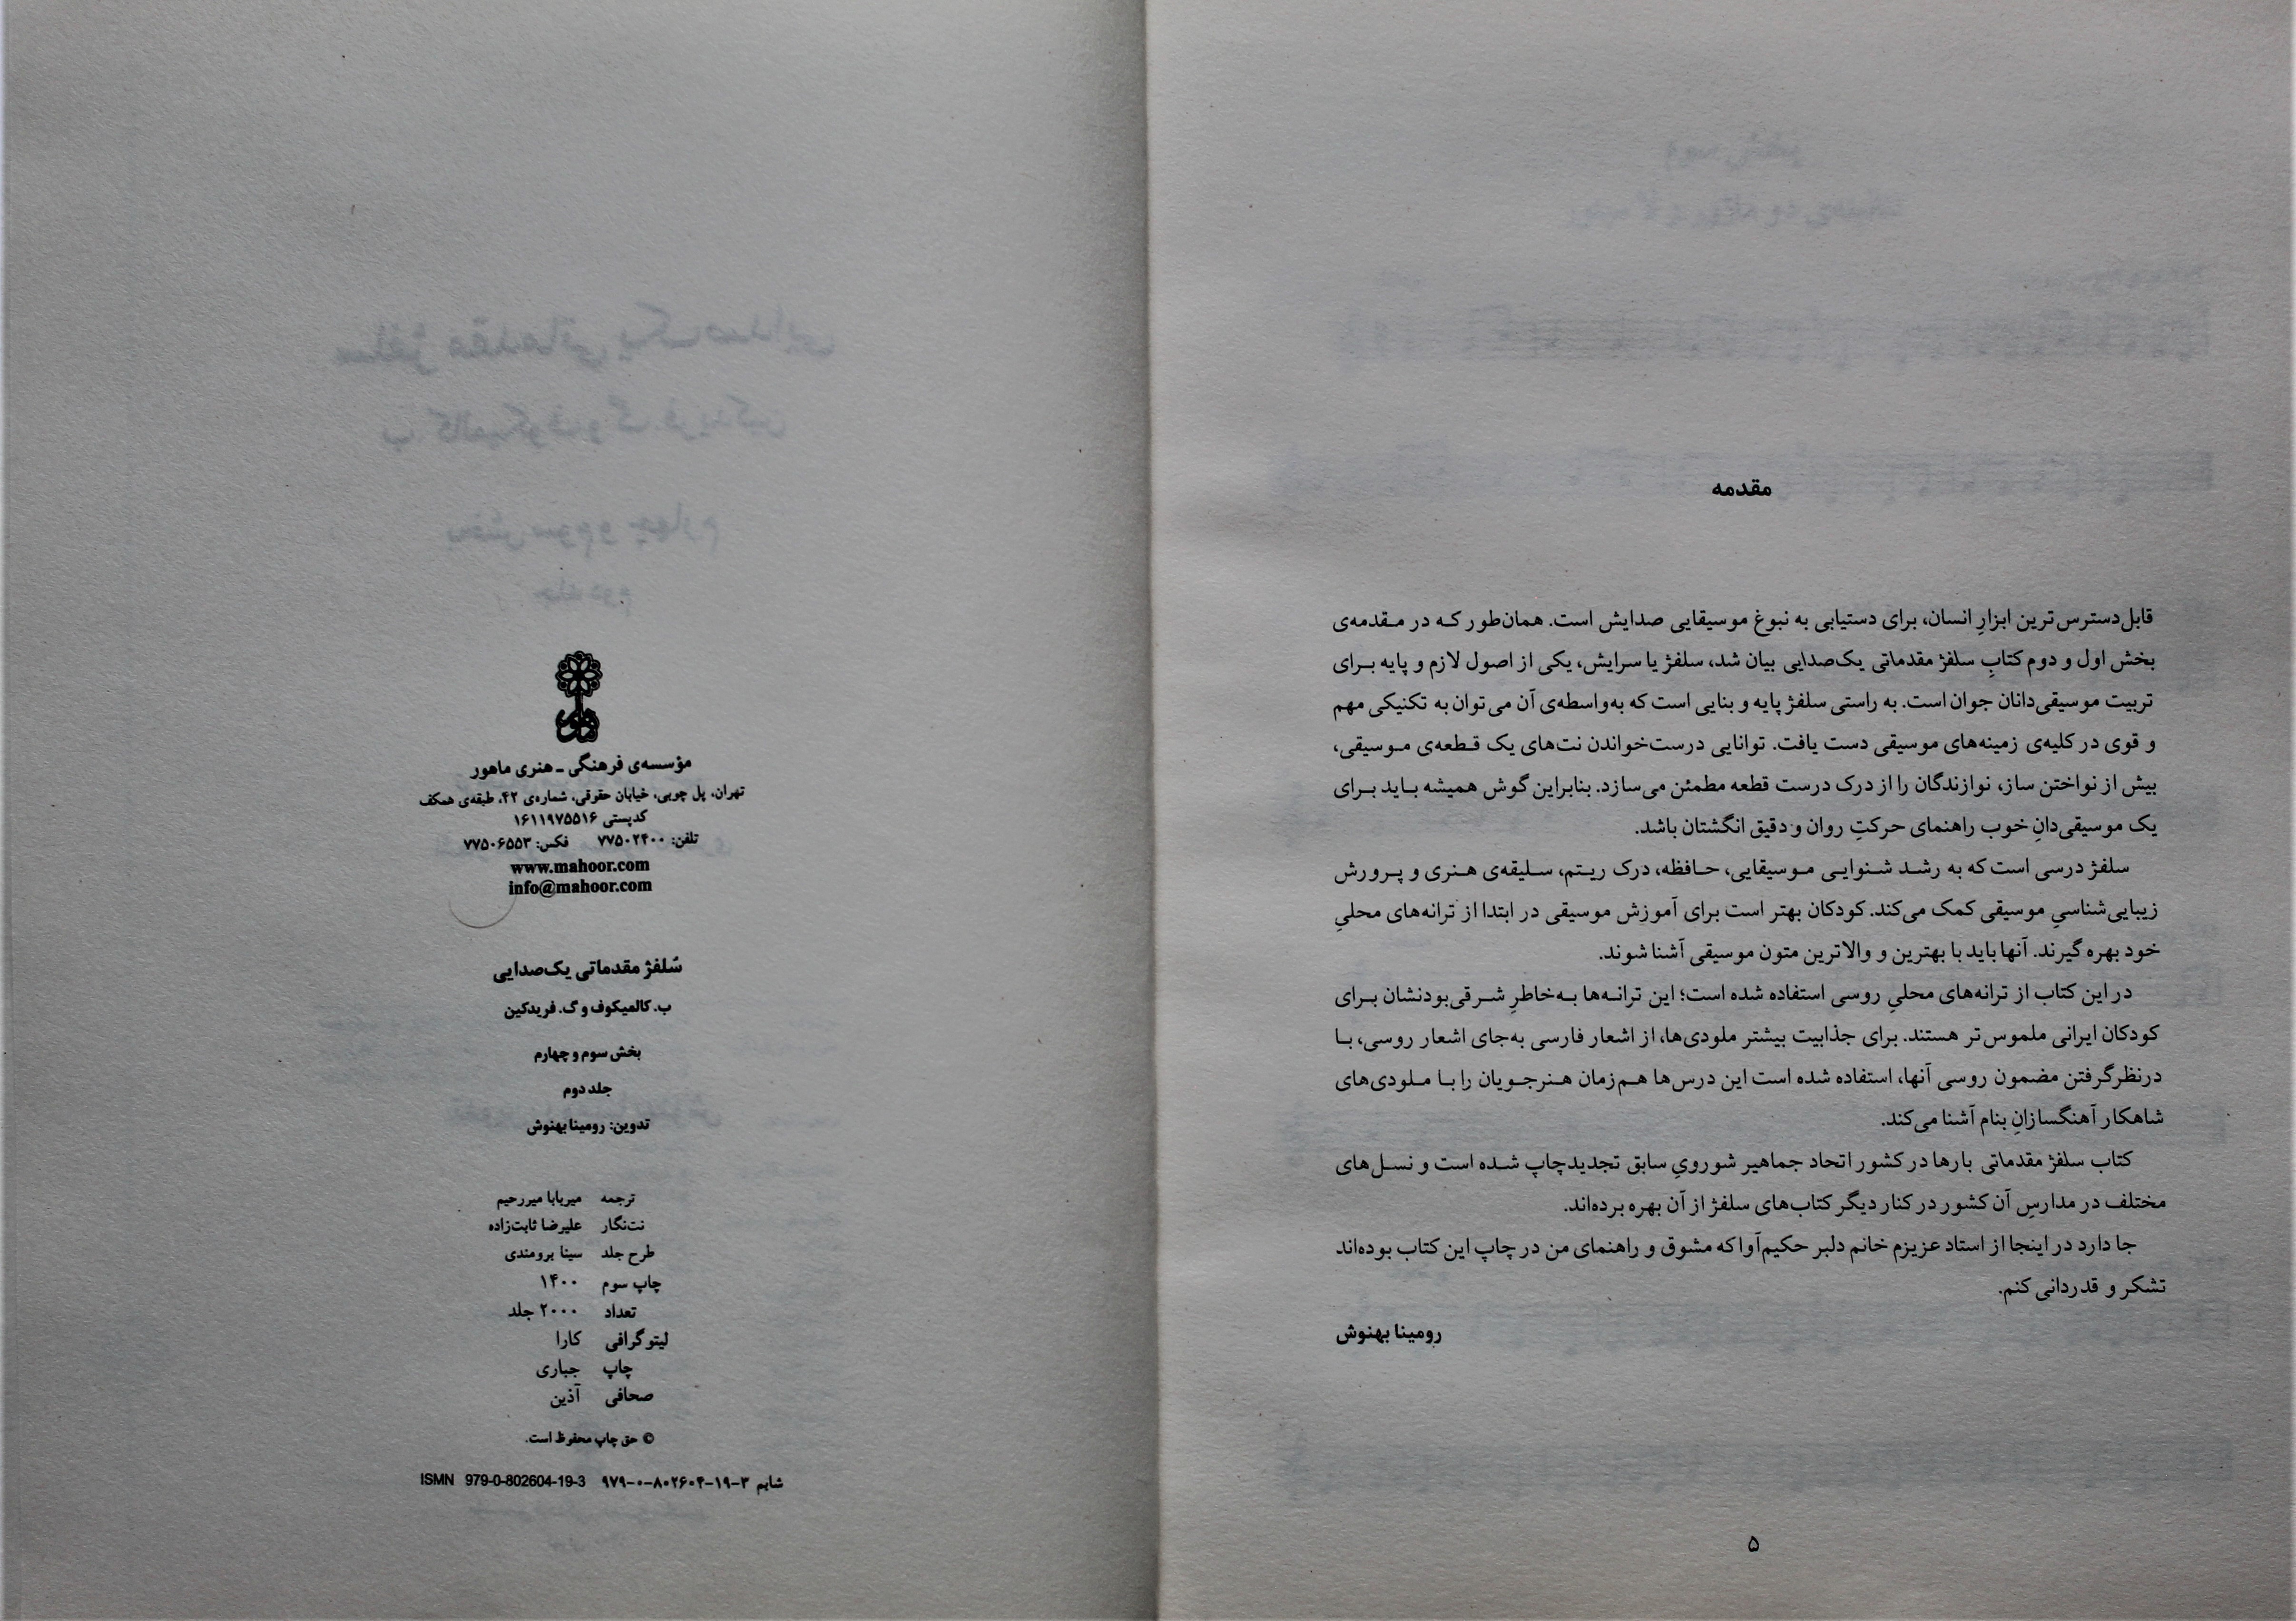 مؤسسه‌ی فرهنگی ـ هنری ماهور
تهران، پل چوبی، خیابان حقوقی، شماره‌ی ۴۲، طبقه‌ی همکف
کدپستی ۱۶۱۱۹۷۵۵۱۶
تلفن: ۷۷۵۰۲۴۰۰ فکس: ۷۷۵۰۶۵۵۳
www.mahoor.com
info@mahoor.com
سُلفژ مقدماتی یک‌صدایی
ب. کالمیکوف و گ. فریدکین
بخش سوم و چهارم
جلد دوم
تدوین: رومینا بهنوش
ترجمه میربابا میررحیم
نت‌نگار علیرضا ثابت‌زاده
طرح جلد سینا برومندی
چاپ سوم ۱۴۰۰
تعداد ۲۰۰۰ جلد
لیتوگرافی کارا
چاپ جباری
صحافی آذین
© حق چاپ محفوظ است.
شابم ۳-۱۹-۸۰۲۶۰۴-۰-۹۷۹ ISMN 979-0-802604-19-3
مقدمه
قابل‌دسترس‌ترین ابزارِ انسان، برای دستیابی به نبوغ موسیقایی صدایش است. همان‌طور که در مقدمه‌ی
بخش اول و دوم کتابِ سلفژ مقدماتی یک‌صدایی بیان شد، سلفژ یا سرایش، یکی از اصول لازم و پایه برای
تربیت موسیقی‌دانان جوان است. به راستی سلفژ پایه و بنایی است که به‌واسطه‌ی آن می‌توان به تکنیکی مهم
و قوی در کلیه‌ی زمینه‌های موسیقی دست یافت. توانایی درست‌خواندن نت‌های یک قطعه‌ی موسیقی،
بیش از نواختن ساز، نوازندگان را از درک درست قطعه مطمئن می‌سازد. بنابراین گوش همیشه باید برای
یک موسیقی‌دانِ خوب راهنمای حرکتِ روان و دقیق انگشتان باشد.
سلفژ درسی است که به رشد شنوایی موسیقایی، حافظه، درک ریتم، سلیقه‌ی هنری و پرورش
زیبایی‌شناسیِ موسیقی کمک می‌کند. کودکان بهتر است برای آموزش موسیقی در ابتدا از ترانه‌های محلیِ
خود بهره گیرند. آنها باید با بهترین و والاترین متون موسیقی آشنا شوند.
در این کتاب از ترانه‌های محلیِ روسی استفاده شده است؛ این ترانه‌ها به‌خاطرِ شرقی‌بودنشان برای
کودکان ایرانی ملموس‌تر هستند. برای جذابیت بیشتر ملودی‌ها، از اشعار فارسی به‌جای اشعار روسی، با
درنظرگرفتن مضمون روسی آنها، استفاده شده است این درس‌ها هم‌زمان هنرجویان را با ملودی‌های
شاهکار آهنگسازانِ بنام آشنا می‌کند.
کتاب سلفژ مقدماتی بارها در کشور اتحاد جماهیر شورویِ سابق تجدیدچاپ شده است و نسل‌های
مختلف در مدارسِ آن کشور در کنار دیگر کتاب‌های سلفژ از آن بهره برده‌اند.
جا دارد در اینجا از استاد عزیزم خانم دلبر حکیم‌آوا که مشوق و راهنمای من در چاپ این کتاب بوده‌اند
تشکر و قدردانی کنم.
رومینا بهنوش
۵